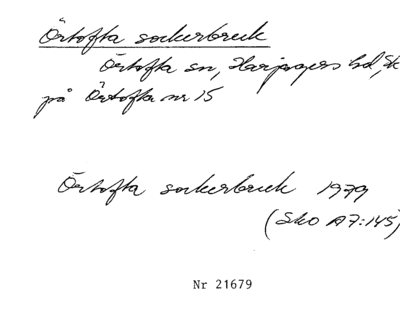 Örtofta sockerbruk
Örtofta sn, Harjagers hd, Sk
på Örtofta nr 15
Örtofta sockerbruk 1979
(Sko A7:145)
Nr 21679